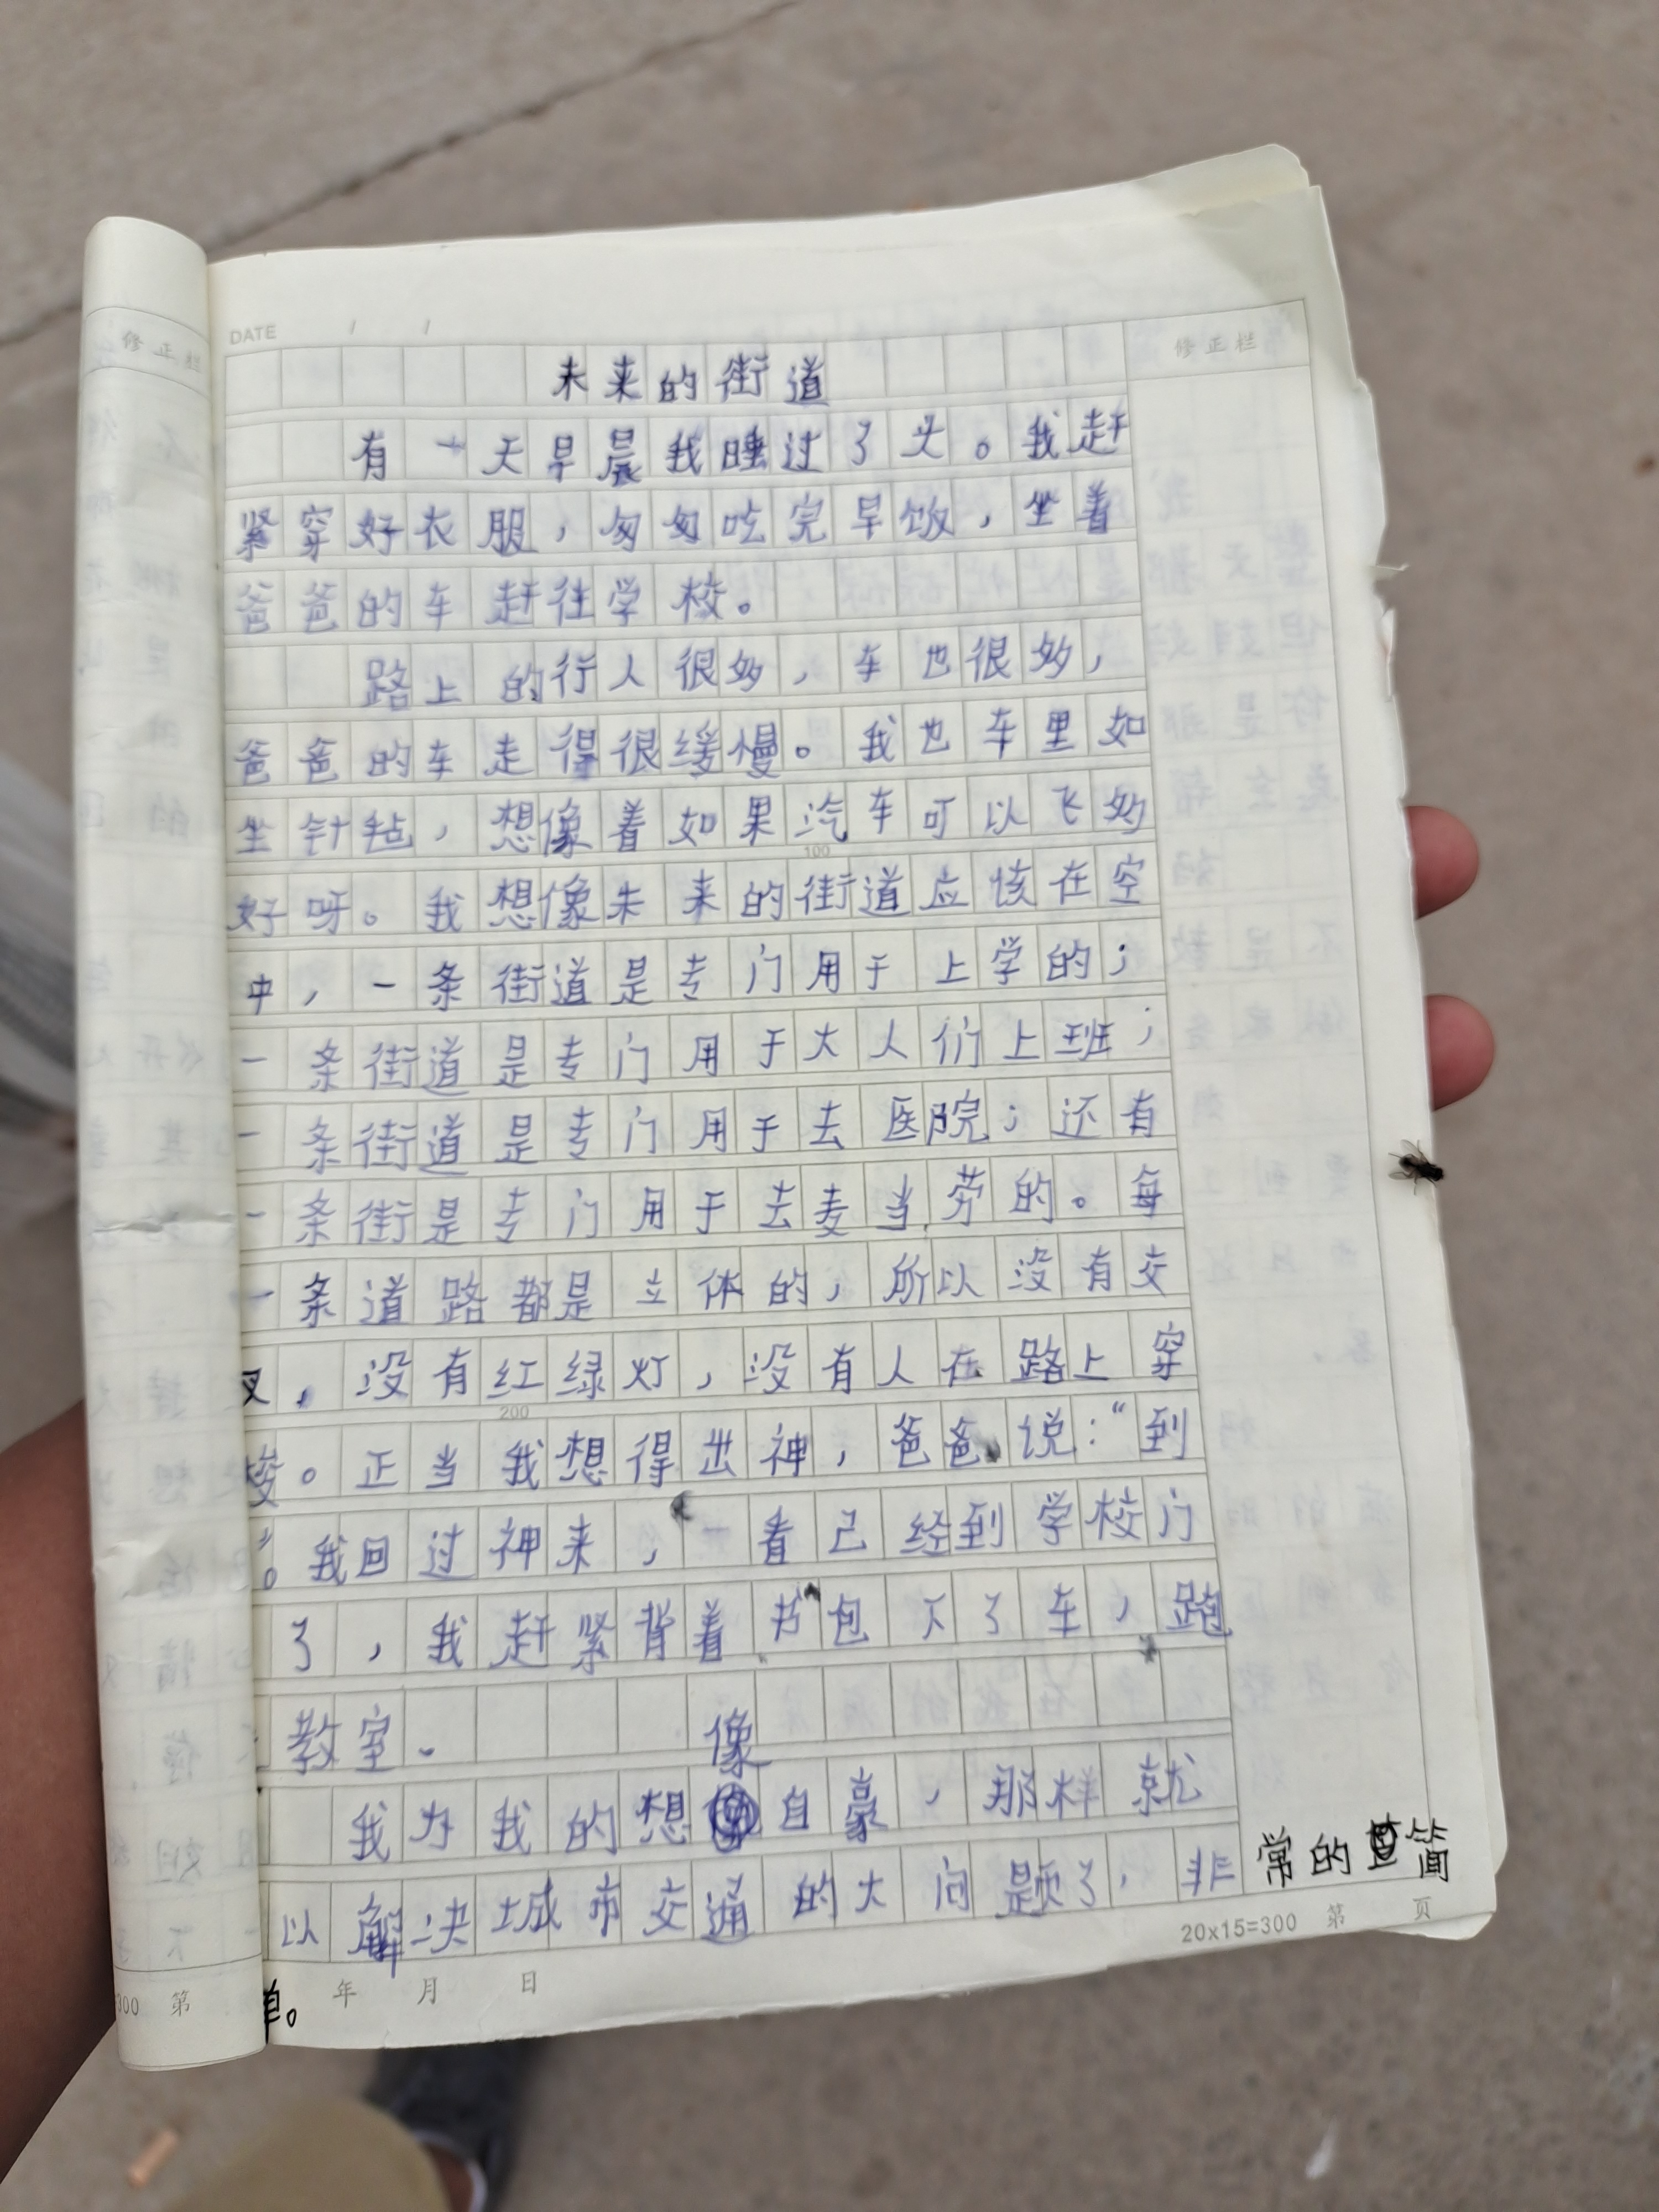 修正栏
DATE / /
修正栏
未来的街道
有一天早晨我睡过了头。我赶
紧穿好衣服，匆匆吃完早饭，坐着
爸爸的车赶往学校。
路上的行人很多，车也很多，
爸爸的车走得很缓慢。我也车里如
坐针毡，想像着如果汽车可以飞多
100
好呀。我想像未来的街道应该在空
中，一条街道是专门用于上学的；
一条街道是专门用于大人们上班；
一条街道是专门用于去医院；还有
一条街是专门用于去麦当劳的。每
一条道路都是立体的，所以没有交
叉，没有红绿灯，没有人在路上穿
200
梭。正当我想得出神，爸爸说：“到
”。我回过神来，一看已经到学校门
了，我赶紧背着书包下了车，跑
教室。
像
我为我的想自豪，那样就
以解决城市交通的大问题了，非常的简
单。
20x15=300 第 页
300 第
年 月 日